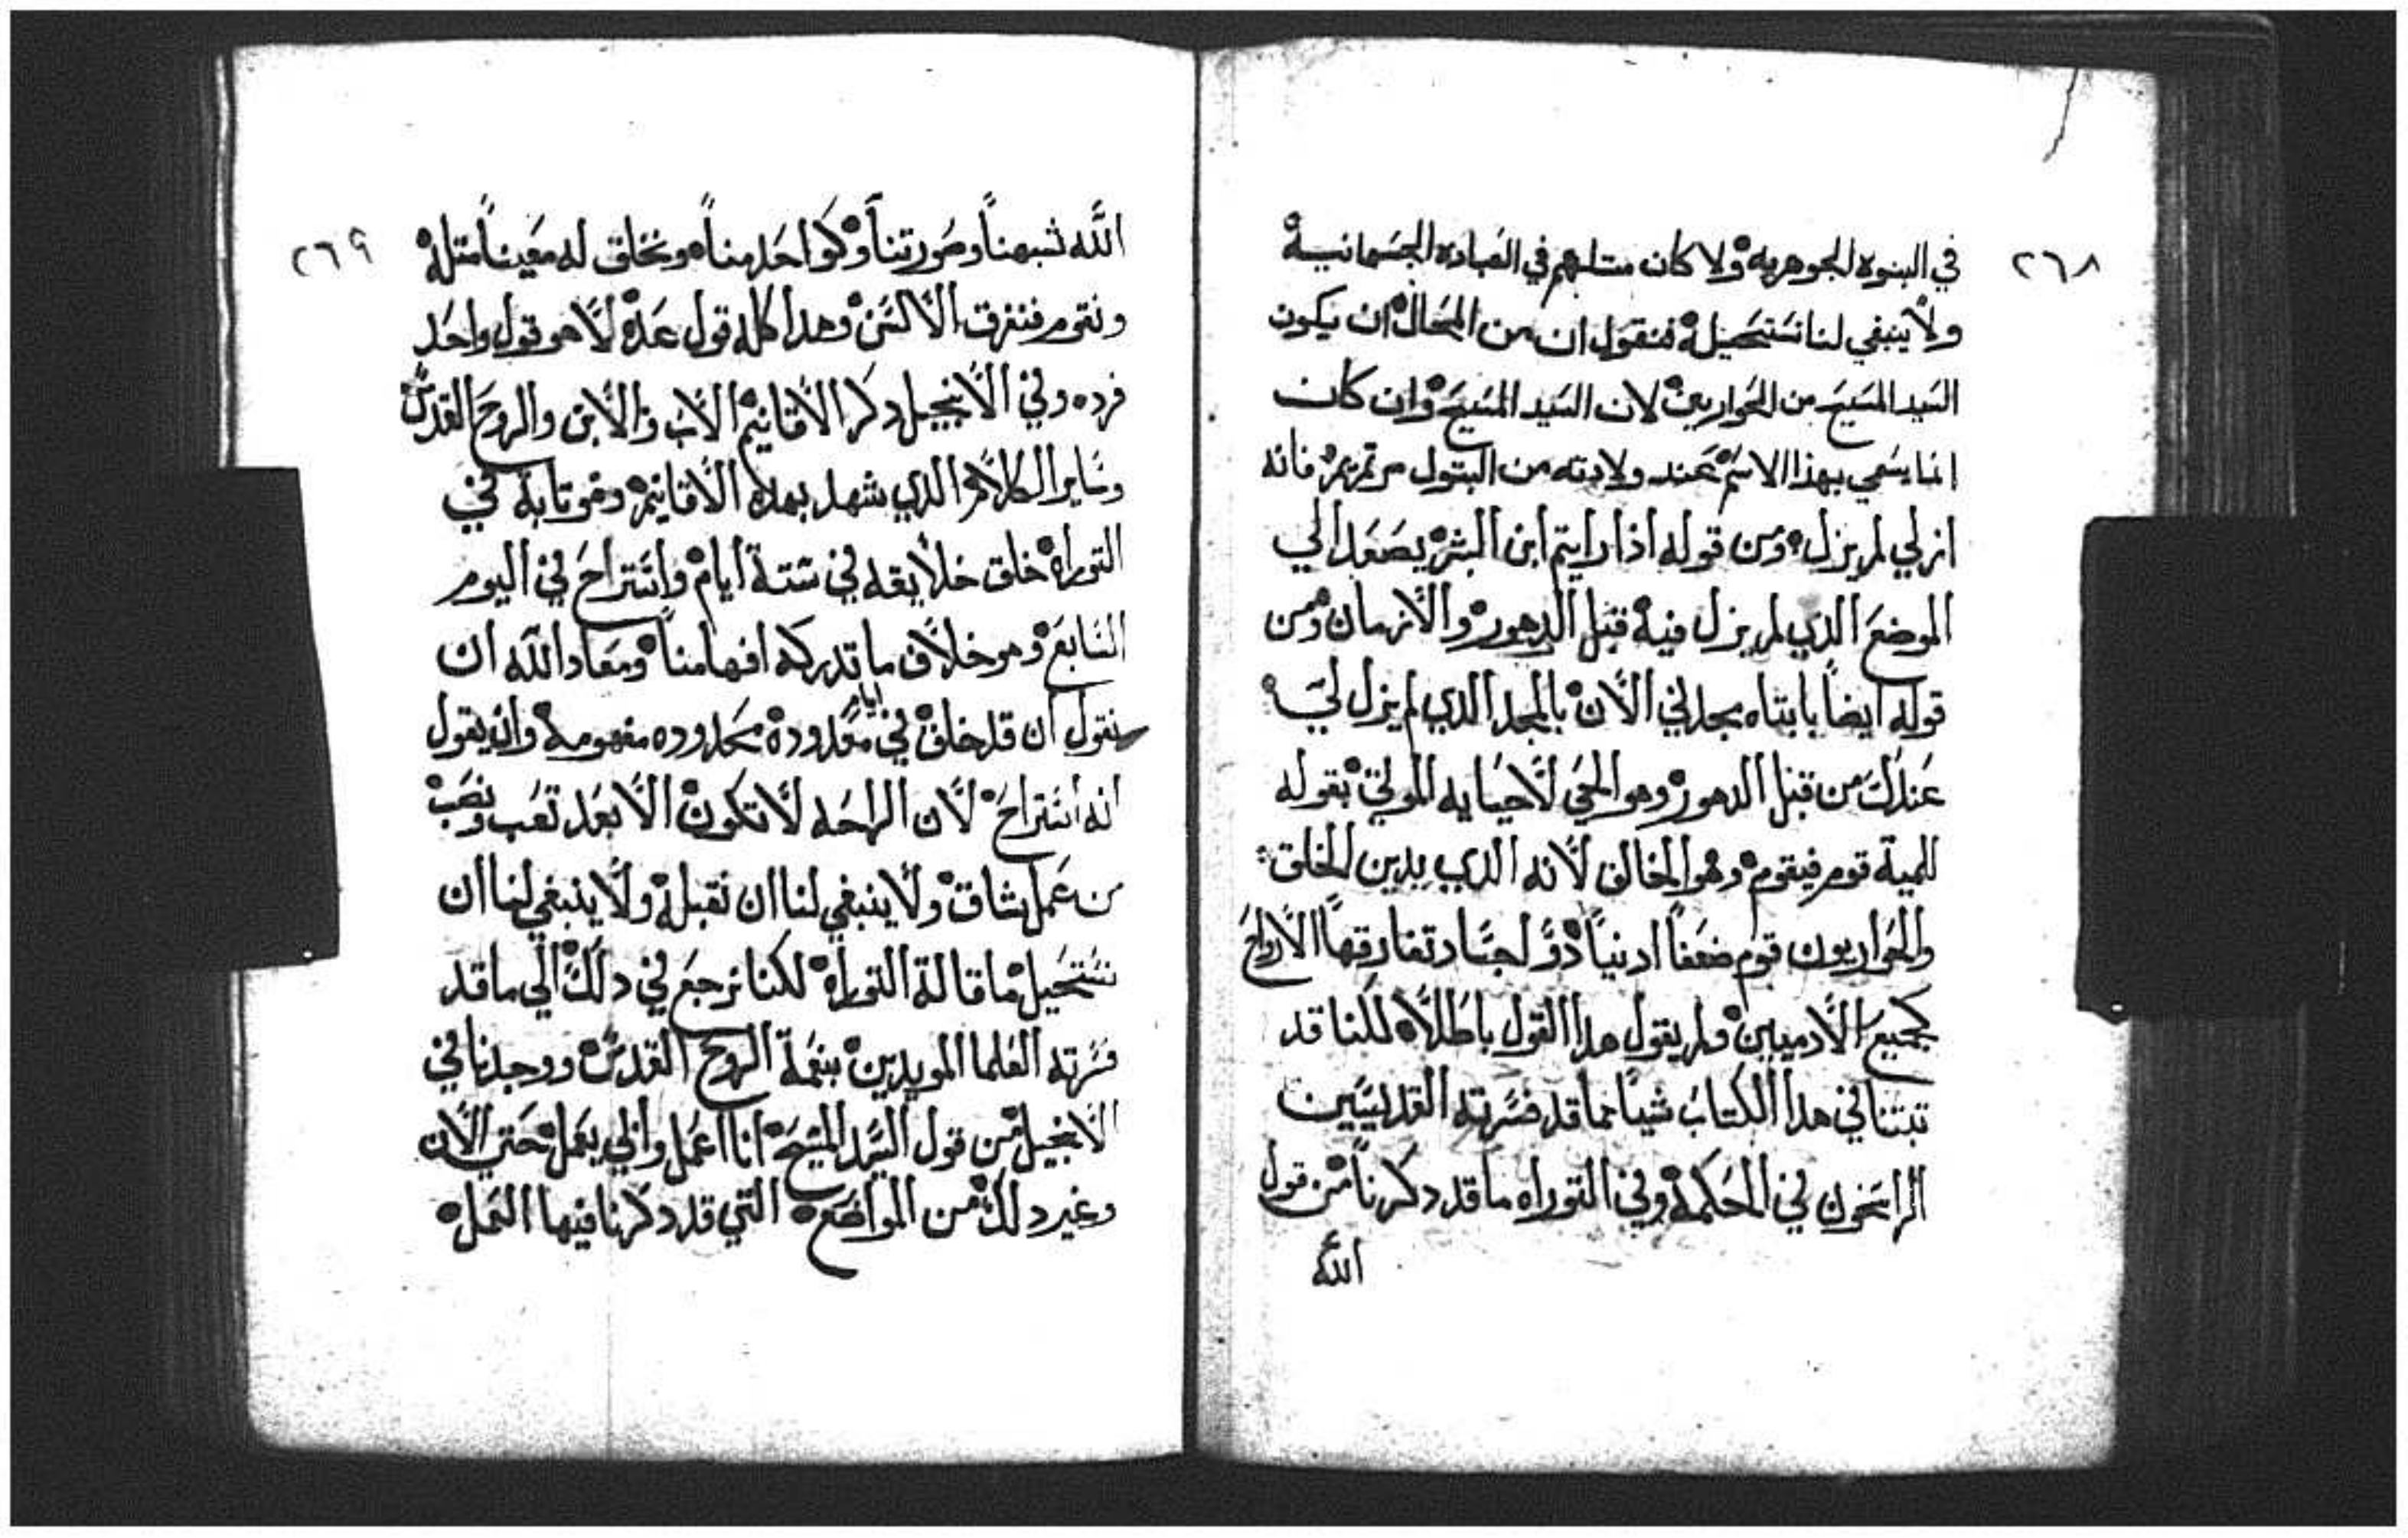 ٢٦٨
في البنوه الجوهريه ولا كان مثلهم في العباده الجسمانيه
ولا ينبغي لنا نستحيله فنقول ان من المحال ان يكون
السيد المسيح من الحواريين لان السيد المسيح وان كان
انما يسمي بهذا الاسم عند ولادته من البتول مرتمريم فانه
ازلي لم يزل ومن قوله اذا رايتم ابن البشر يصعد الي
الموضع الذي لم يزل فيه قبل الدهور والازمان ومن
قوله ايضاً يا ابتاه مجدني الان بالمجد الدي لم يزل لي
عندك من قبل الدهور وهو المحي لاحيايه الموتي بقوله
للمية قوم فيقوم وهو الخالق لانه الدي يدين الخلق
والحواريون قوم ضعفا ادنيا دو اجساد تفارقها الارواح
كجميع الادميين ولم يقول هدا القول باطلاً لكنا قد
تبتنا في هدا الكتاب شياً مما قد فسرته القديسيين
الراسخون في الحكمة وفي التوراه ما قد دكرنا من قول
الله
٢٦٩
الله نشبهنا وصورتنا وكواحد منا ونخلق له معيناً متله
ونقوم فنفرق الالسن وهدا كله قول عدة لا هو قول واحد
فرده وفي الانجيل دكر الاقانيم الاب والابن والروح القدس
وساير الكلام الدي يشهد بهده الاقانيم وفوتابة في
التوراه خلق خلايقه في ستة ايام واستراح في اليوم
السابع وهو خلاف ما تدركه افهامنا ومعاد الله ان
نقول ان قد خلق في ايام معدودة محدوده مفهومة وان يقول
انه استراح لان الراحه لا تكون الا بعد تعب ونصب
من عمل شاق ولا ينبغي لنا ان نقبله ولا ينبغي لنا ان
نستحيل ما قالة التوراه لكنا نرجع في دلك الي ما قد
فسرته العلما المويدين بنعمة الروح القدس ووجدنا في
الانجيل من قول السيد المسيح انا اعمل وابي يعمل حتي الان
وغير دلك من المواضع التي قد دكرنا فيها العمل